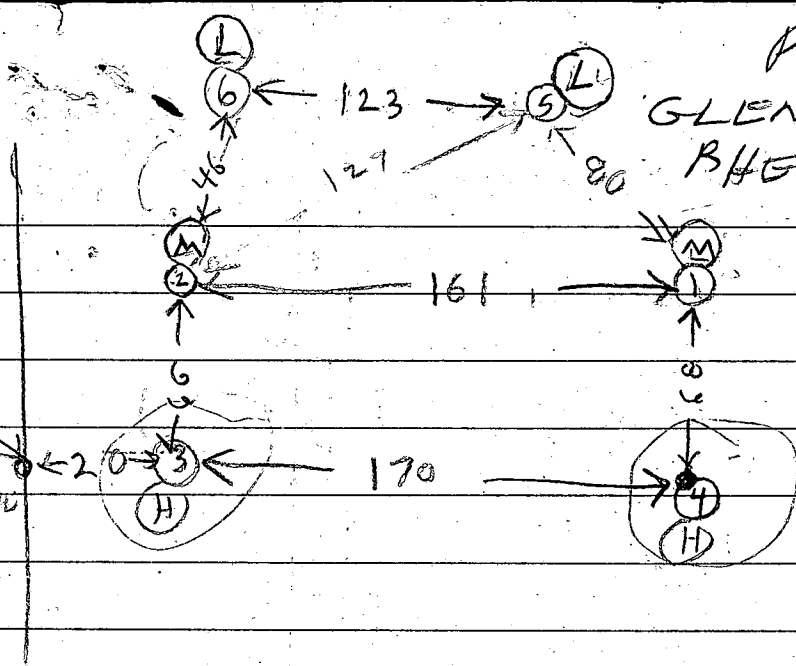 L
L
6 123 5
GLEN
BHE
46 129 80
M M
2 161 1
20 3 170 4
H H